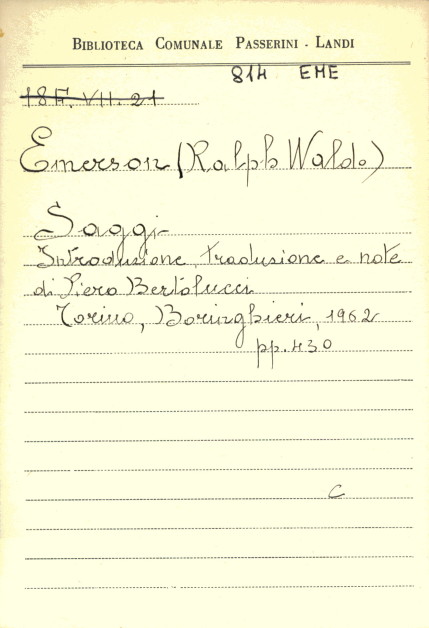 BIBLIOTECA COMUNALE PASSERINI - LANDI
814 EME
18 F. VII. 21
Emerson (Ralph Waldo)
Saggi
Introduzione, traduzione e note
di Piero Bertolucci
Torino, Boringhieri, 1962
pp. 430
C